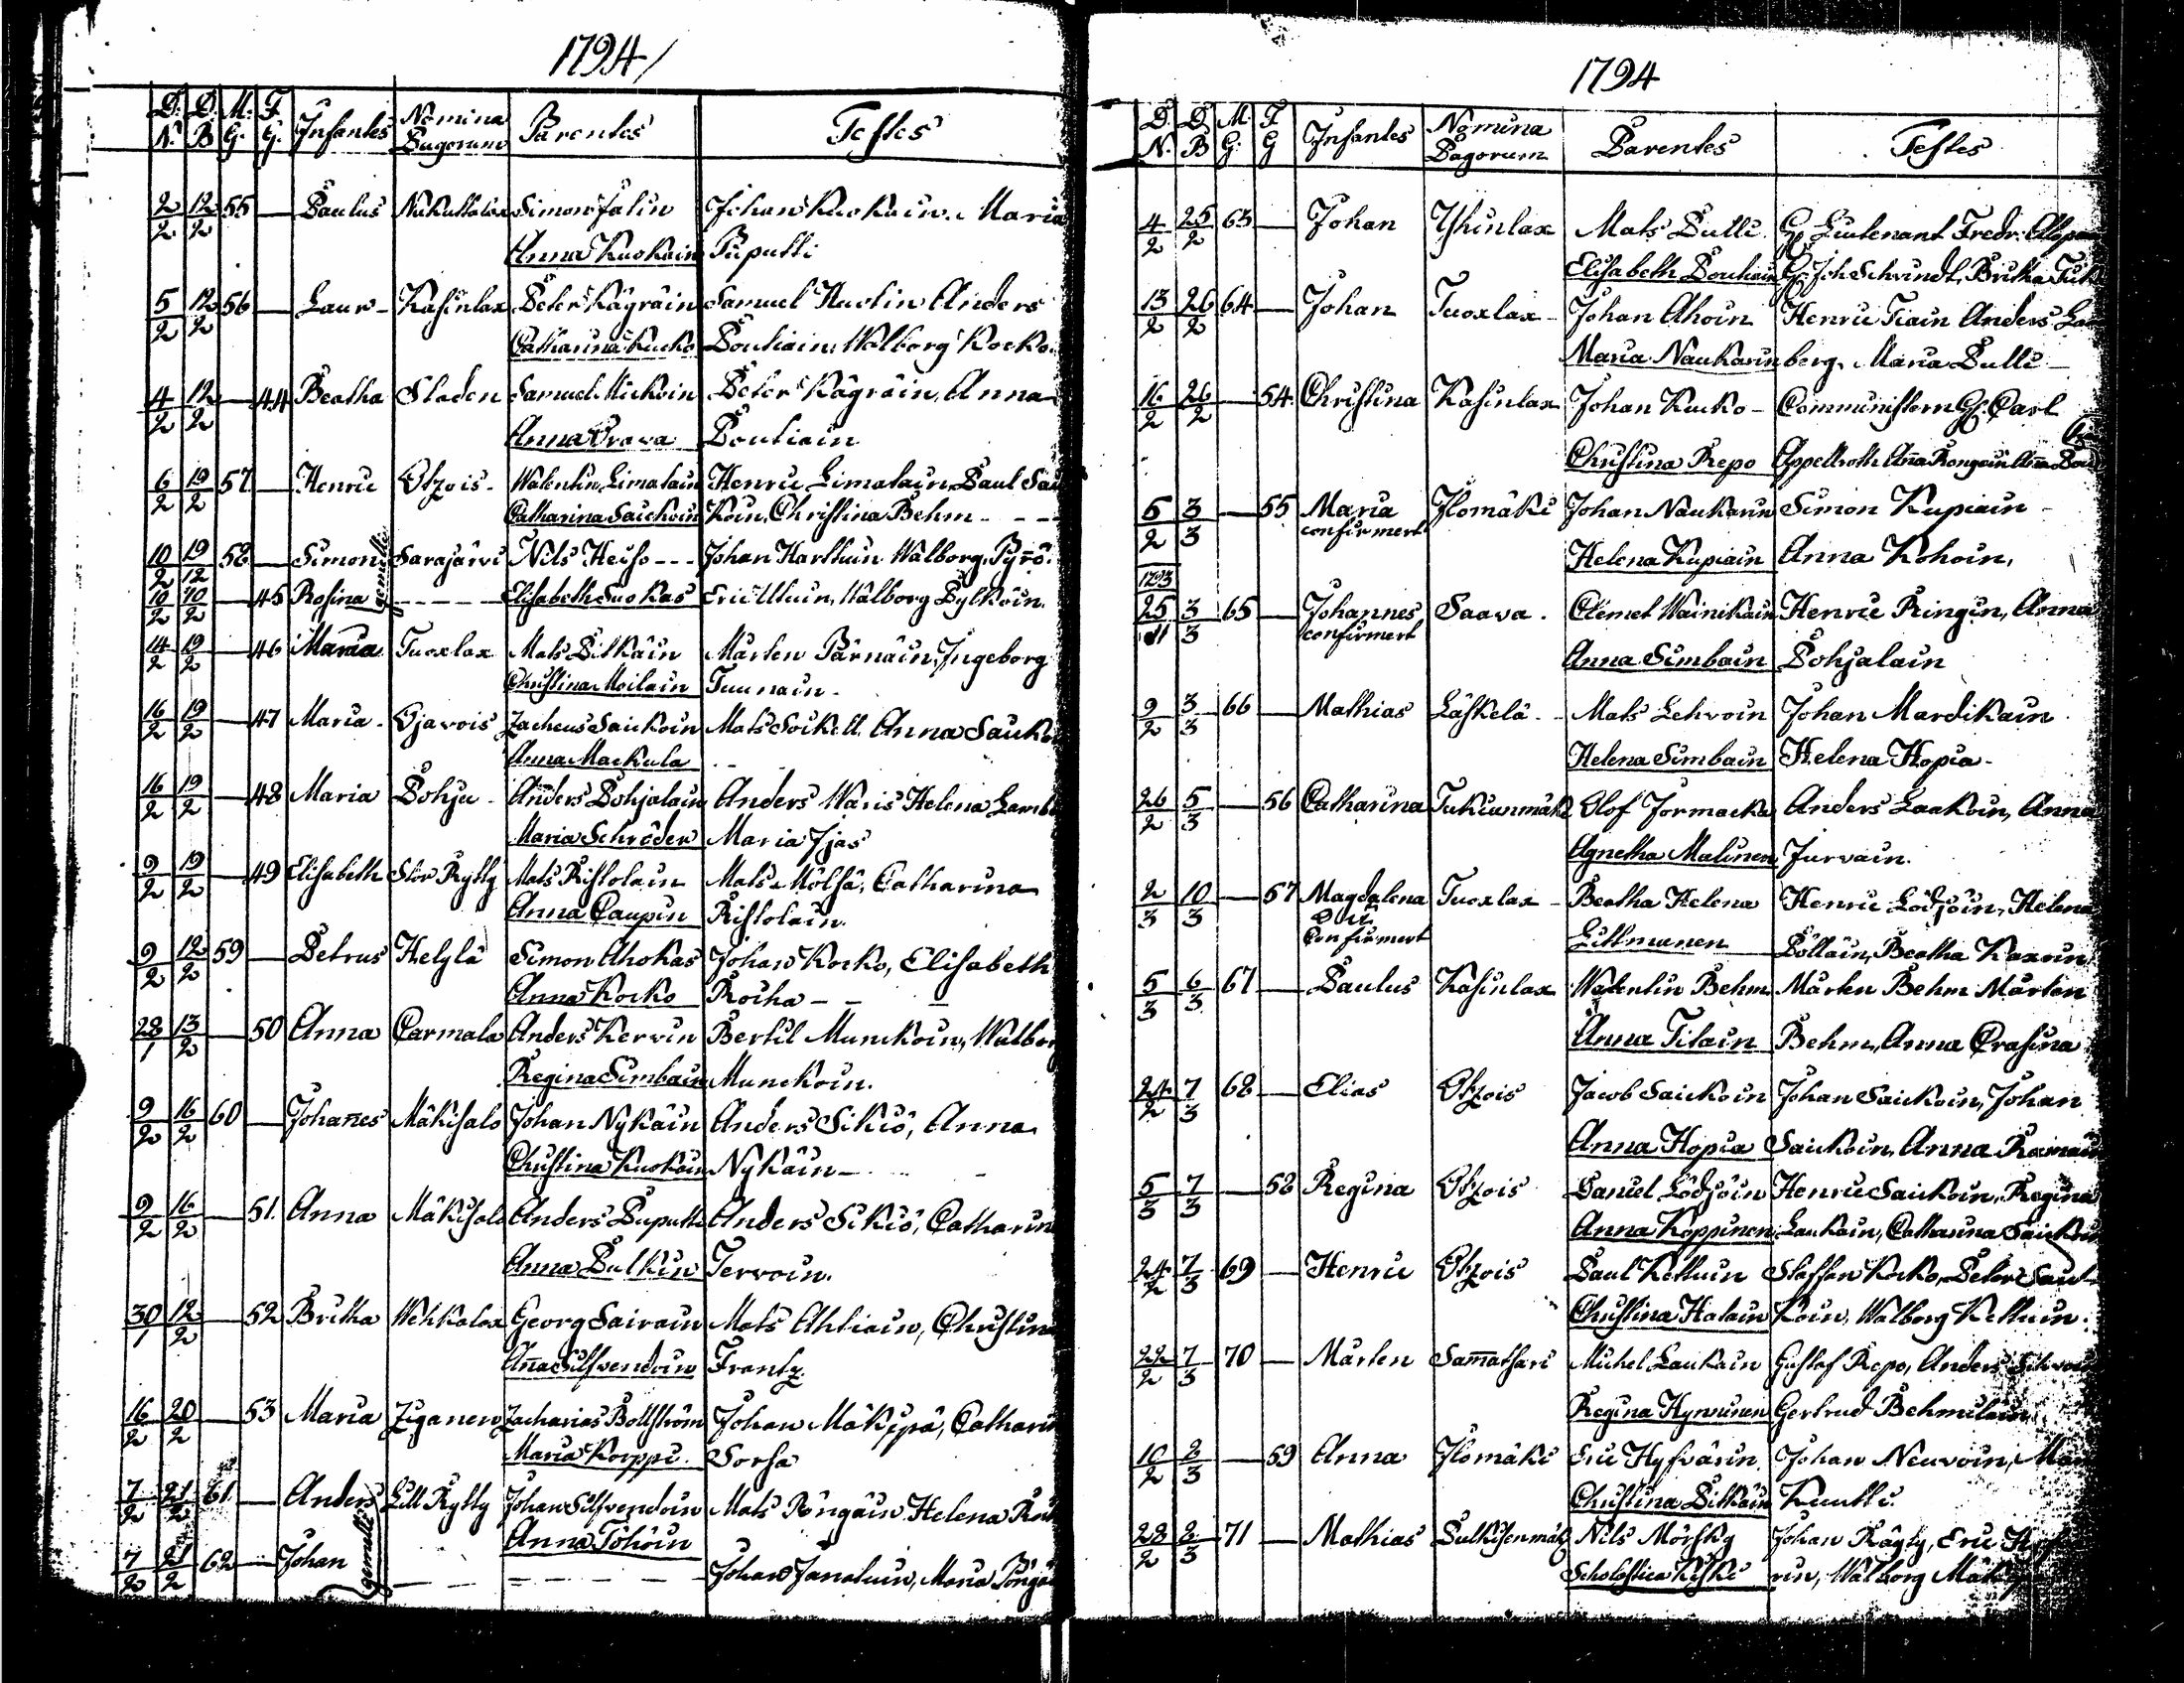 1794
D. N. D. B M. G. F. G. Infantes Nomina Pagorum Parentes Testes
2/2 12/2 55 — Paulus Simon Jalin Johan Kuokain. Maria
Anna Kuokain Puputti
5/2 12/2 56 — Laur- Kasinlax Peter Kägräin Samuel Huolin Anders
Catharina Kucko Poutiain. Walborg Kocko.
4/2 12/2 — 44 Beatha Staden Samuel Mickoin Peter Kägräin, Anna
Anna Orava Poutiain
6/2 19/2 57 — Henric Otzois- Walentin Limatain Henric Limatain, Paul Sai
Catharina Saickoin Koin, Christina Behm - - -
10/2 19/12 58 — Simon gemelli Sarajärvi Nils Heiso - - - Johan Harttuin Walborg Pyrö.
10/2 10/2 — 45 Rosina - - - - Elisabeth Suokas Eric Uttuin, Walborg Pylköin.
14/2 19/2 — 46 Maria Tuoxlax Mats Pitkäin Mårten Pärnäin, Ingeborg
Christina Moilain Tuunain-
16/2 19/2 — 47 Maria- Ojavois Zacheus Saickoin Mats Sockell. Anna Saicko
Anna Mackula
16/2 19/2 — 48 Maria Pohju- Anders Pohjalain Anders Waris Helena Lamb
Maria Schröder Maria Ijas
9/2 19/2 — 49 Elisabeth Stor Rytty Mats Ristolain Mats Mölsä, Catharina
Anna Caupin Ristolain.
9/2 12/2 59 — Petrus Helylä Simon Ahokas Johan Kocko, Elisabeth
Anna Kocko Roiha - -
28/1 13/2 — 50 Anna Carmala Anders Kervin Bertil Munckoin, Walbor
Regina Simbain Munckoin.
9/2 16/2 60 — Johañes Mäkisalo Johan Nykäin Anders Sikiö, Anna
Christina Kuokain Nykäin-
9/2 16/2 — 51. Anna Mäkisalo Anders Puputti Anders Sikiö, Catharin
Anna Pulkin Tervoin.
30/1 12/2 — 52 Britha Wehkalax Georg Sairain Mats Ahtiain, Christina
Aña Silfvendoin Frantz.
16/2 20/2 — 53 Maria Ziganen Zacharias Bollström Johan Mäkipä, Catharin
Maria Korppi. Sorsa
7/2 21/2 61 — Anders gemelli Lill Rytty Johan Silfvendoin Mats Röngäin Helena
Anna Töhöin
7/2 21/2 62 — Johan - - - - Johan Janatuin, Maria Röngä
1794
D. N. D. B M. G. F. G Infantes Nomina Pagorum Parentes Testes
4/2 25/2 63 — Johan Yhinlax Mats Pulli. H: Lieutenant Fredr:
Elisabeth Poutiain H: Joh Schvindt, Britha
13/2 26/2 64 — Johan Tuoxlax- Johan Ahoin Henric Tiain Anders
Maria Naukarin berg. Maria Pulli-
16/2 26/2 — 54. Christina Kasinlax Johan Kucko- Communistern H: Carl
Christina Repo Appellroth Aña Rongain Aña
5/2 3/3 — 55 Maria Ilomäki Johan Naukarin Simon Kupiain-
confirmert
Helena Kupiain Anna Kohoin.
1793
25/11 3/3 65 — Johannes Saava. Clemet Wainikain Henric Ringin, Anna
confirmert
Anna Simbain Pohjalain
9/2 3/3 66 — Mathias Läskelä - - Mats Lehvoin Johan Mardikain
Helena Simbain Helena Hopia-
26/2 5/3 — 56 Catharina Tukianmäki Olof Jormacka Anders Laakoin, Anna
Agnetha Malinen Jurvain.
2/3 10/3 — 57 Magdalena Tuoxlax- Beatha Helena Henric Lödjöin, Helena
confirmert Littmanen Pölläin, Beatha Kaxoin
5/3 6/3 67 — Paulus Kasinlax Walentin Behm Mårten Behm Mårten
Anna Tilain Behm, Anna Orasina
24/2 7/3 68 — Elias Otzois Jacob Saickoin Johan Saickoin, Johan
Anna Hopia Saickoin, Anna
5/3 7/3 — 58 Regina Otzois Daniel Lödjöin Henric Saickoin, Regina
Anna Koppinen Laukain, Catharina Saickoin
24/2 7/3 69 — Henric Otzois Paul Kettuin Staffan Kocko, Peter Saic
Christina Hatain Koin, Walborg Kettuin.
22/2 7/3 70 — Mårten Samatsari Michel Laukain Gustaf Repo, Anders
Regina Hynninen Gertrud Behmilain
10/2 2/3 — 59 Anna Ilomäki Eric Hyfvärin Johan Neuvoin, Mar
Christina Pitkäin Kuutti.
28/2 2/3 71 — Mathias Pulkisenmäki Nils Mörsky Johan Rägty, Eric
Scholastica Kiski rin, Walborg